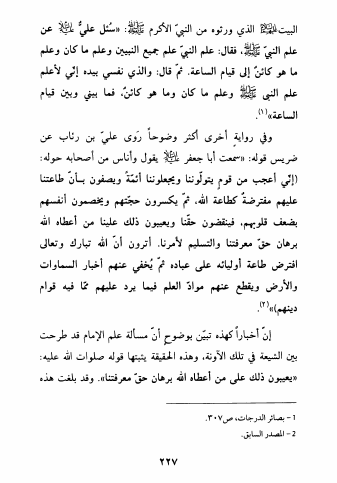 البيت عليهم السلام الذي ورثوه من النبيّ الأكرم ﷺ: «سُئل عليٌّ عليه السلام عن
علم النبيّ ﷺ، فقال: علم النبيّ علم جميع النبيين وعلم ما كان وعلم
ما هو كائنٌ إلى قيام الساعة. ثمّ قال: والذي نفسي بيده إنّي لأعلم
علم النبى ﷺ وعلم ما كان وما هو كائنٌ، فما بيني وبين قيام
الساعة»(١).
وفي روايةٍ أخرى أكثر وضوحاً رَوى عليّ بن رئاب عن
ضريس قوله: «سمعت أبا جعفر عليه السلام يقول وأناس من أصحابه حوله:
(إنّي أعجب من قومٍ يتولّوننا ويجعلوننا أئمّةً ويصفون بأنّ طاعتنا
عليهم مفترضةٌ كطاعة الله، ثمّ يكسرون حجّتهم ويخصمون أنفسهم
بضعف قلوبهم، فينقضون حقّنا ويعيبون ذلك علينا من أعطاه الله
برهان حقّ معرفتنا والتسليم لأمرنا. أترون أنّ الله تبارك وتعالى
افترض طاعة أوليائه على عباده ثمّ يُخفي عنهم أخبار السماوات
والأرض ويقطع عنهم موادّ العلم فيما يرد عليهم ممّا فيه قوام
دينهم)»(٢).
إنّ أخباراً كهذه تبيّن بوضوحٍ أنّ مسألة علم الإمام قد طرحت
بين الشيعة في تلك الآونة، وهذه الحقيقة يثبتها قوله صلوات الله عليه:
«يعيبون ذلك على من أعطاه الله برهان حقّ معرفتنا». وقد بلغت هذه
1 - بصائر الدرجات، ص٣٠٧.
2 - المصدر السابق.
٢٢٧